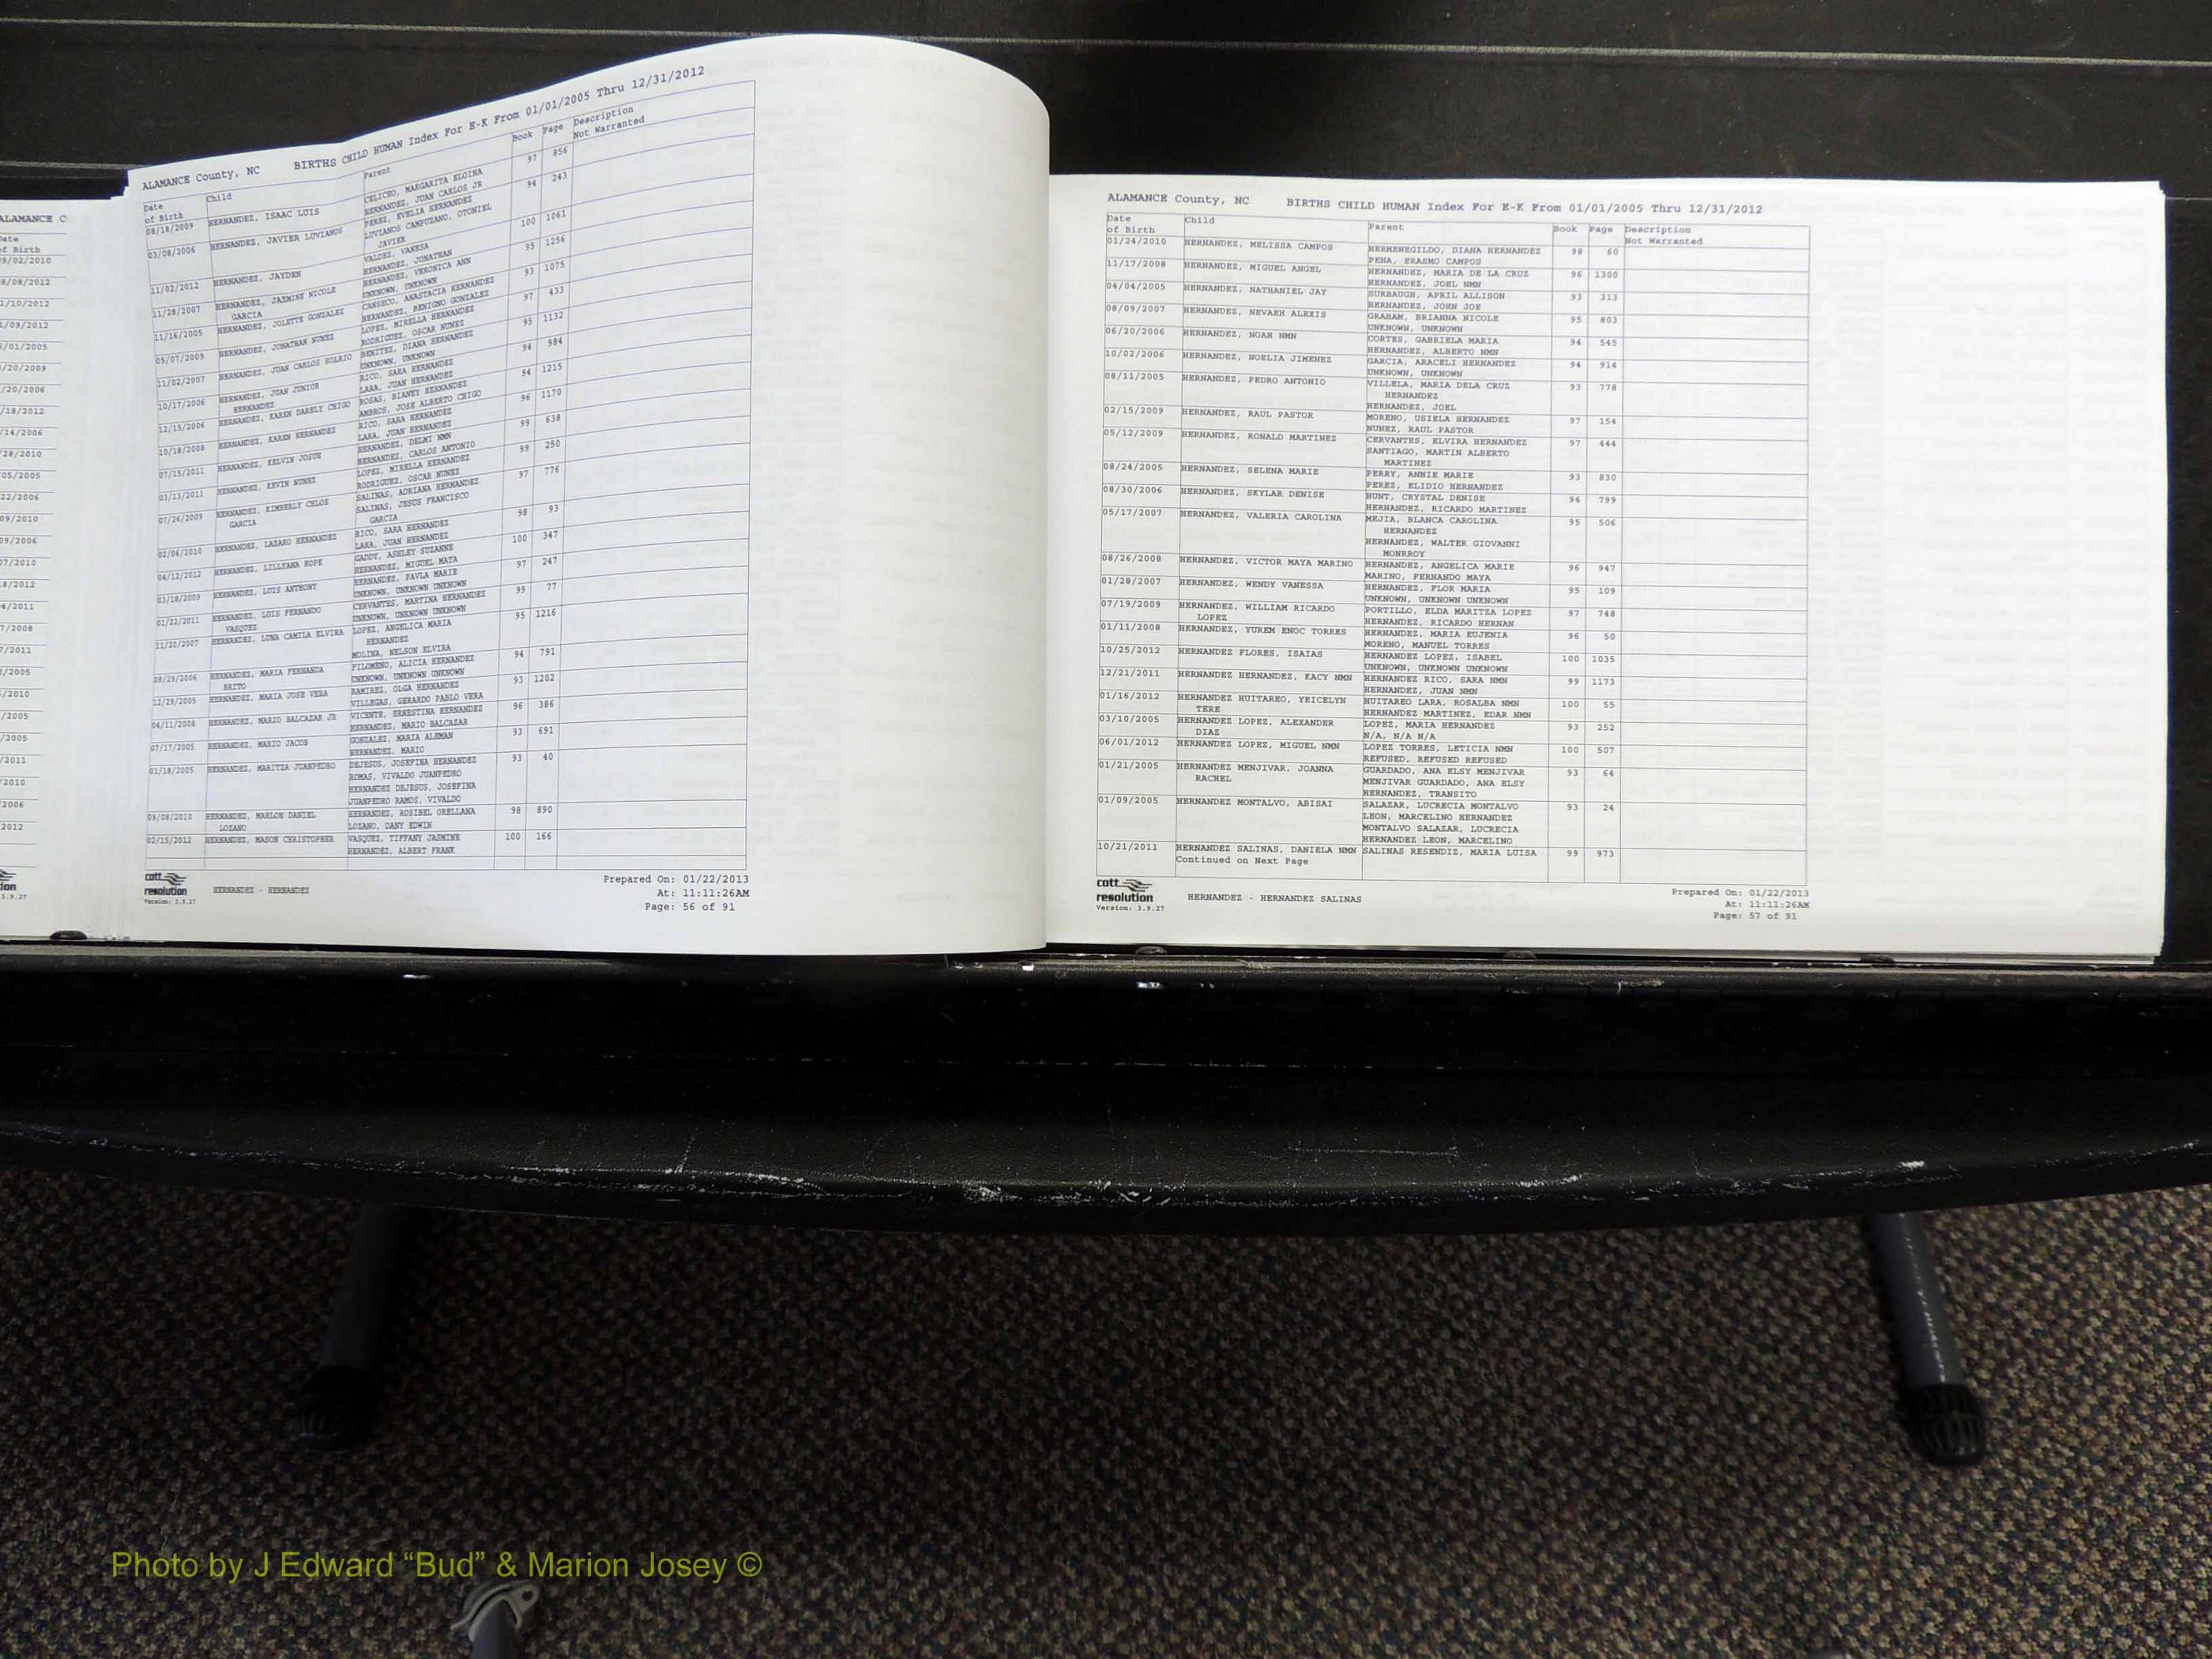 ALAMANCE C
Date
of Birth
09/02/2010
8/08/2012
1/10/2012
1/09/2012
/01/2005
/20/2009
/20/2006
/18/2012
/14/2006
/28/2010
05/2005
22/2006
09/2010
09/2006
07/2010
8/2012
4/2011
7/2008
/2011
/2005
/2010
/2005
/2005
/2011
2010
2006
2012
3.9.27
ALAMANCE County, NC BIRTHS CHILD HUMAN Index For E-K From 01/01/2005 Thru 12/31/2012
Date of Birth Child Parent Book Page Description Not Warranted
08/18/2009 HERNANDEZ, ISAAC LUIS CELICEO, MARGARITA ELOINA 97 856
HERNANDEZ, JUAN CARLOS JR
03/08/2006 HERNANDEZ, JAVIER LUVIANOS PEREZ, EVELIA HERNANDEZ 94 243
LUVIANOS CAMPUZANO, OTONIEL
JAVIER
11/02/2012 HERNANDEZ, JAYDEN VALDEZ, VANESA 100 1061
HERNANDEZ, JONATHAN
11/28/2007 HERNANDEZ, JAZMINE NICOLE HERNANDEZ, VERONICA ANN 95 1256
GARCIA UNKNOWN, UNKNOWN
11/16/2005 HERNANDEZ, JOLETTE GONZALEZ CANSECO, ANASTACIA HERNANDEZ 93 1075
HERNANDEZ, BENIGNO GONZALEZ
05/07/2009 HERNANDEZ, JONATHAN NUNEZ LOPEZ, MIRELLA HERNANDEZ 97 433
RODRIGUEZ, OSCAR NUNEZ
11/02/2007 HERNANDEZ, JUAN CARLOS SOLRIO BENITEZ, DIANA HERNANDEZ 95 1132
UNKNOWN, UNKNOWN
10/17/2006 HERNANDEZ, JUAN JUNIOR RICO, SARA HERNANDEZ 94 984
HERNANDEZ LARA, JUAN HERNANDEZ
12/15/2006 HERNANDEZ, KAREN DARELY CHIGO ROSAS, BIANEY HERNANDEZ 94 1215
AMBROS, JOSE ALBERTO CHIGO
10/18/2008 HERNANDEZ, KAREN HERNANDEZ RICO, SARA HERNANDEZ 96 1170
LARA, JUAN HERNANDEZ
07/15/2011 HERNANDEZ, KELVIN JOSUE HERNANDEZ, DELMI NMN 99 638
HERNANDEZ, CARLOS ANTONIO
03/13/2011 HERNANDEZ, KEVIN NUNEZ LOPEZ, MIRELLA HERNANDEZ 99 250
RODRIGUEZ, OSCAR NUNEZ
07/26/2009 HERNANDEZ, KIMBERLY CHLOE SALINAS, ADRIANA HERNANDEZ 97 776
GARCIA SALINAS, JESUS FRANCISCO
GARCIA
02/06/2010 HERNANDEZ, LAZARO HERNANDEZ RICO, SARA HERNANDEZ 98 93
LARA, JUAN HERNANDEZ
04/12/2012 HERNANDEZ, LILLYANA HOPE GADDY, ASHLEY SUZANNE 100 347
HERNANDEZ, MIGUEL MATA
03/18/2009 HERNANDEZ, LUIS ANTHONY HERNANDEZ, PAVLA MARIE 97 247
UNKNOWN, UNKNOWN UNKNOWN
01/22/2011 HERNANDEZ, LUIS FERNANDO CERVANTES, MARTINA HERNANDEZ 99 77
VASQUEZ UNKNOWN, UNKNOWN UNKNOWN
11/20/2007 HERNANDEZ, LUNA CAMILA ELVIRA LOPEZ, ANGELICA MARIA 95 1216
HERNANDEZ
MOLINA, NELSON ELVIRA
08/29/2006 HERNANDEZ, MARIA FERNANDA FILOMENO, ALICIA HERNANDEZ 94 791
BRITO UNKNOWN, UNKNOWN UNKNOWN
12/29/2005 HERNANDEZ, MARIA JOSE VERA RAMIREZ, OLGA HERNANDEZ 93 1202
VILLEGAS, GERARDO PABLO VERA
04/11/2008 HERNANDEZ, MARIO BALCAZAR JR VICENTE, ERNESTINA HERNANDEZ 96 386
HERNANDEZ, MARIO BALCAZAR
07/17/2005 HERNANDEZ, MARIO JACOB GONZALEZ, MARIA ALEMAN 93 691
HERNANDEZ, MARIO
01/18/2005 HERNANDEZ, MARITZA JUANPEDRO DEJESUS, JOSEFINA HERNANDEZ 93 40
ROMAS, VIVALDO JUANPEDRO
HERNANDEZ DEJESUS, JOSEFINA
JUANPEDRO RAMOS, VIVALDO
09/08/2010 HERNANDEZ, MARLON DANIEL HERNANDEZ, ROSIBEL ORELLANA 98 890
LOZANO LOZANO, DANY EDWIN
02/15/2012 HERNANDEZ, MASON CHRISTOPHER VASQUEZ, TIFFANY JASMINE 100 166
HERNANDEZ, ALBERT FRANK
cott resolution
Version: 3.9.27
HERNANDEZ - HERNANDEZ
Prepared On: 01/22/2013
At: 11:11:26AM
Page: 56 of 91
ALAMANCE County, NC BIRTHS CHILD HUMAN Index For E-K From 01/01/2005 Thru 12/31/2012
Date of Birth Child Parent Book Page Description Not Warranted
01/24/2010 HERNANDEZ, MELISSA CAMPOS HERMENEGILDO, DIANA HERNANDEZ 98 60
PENA, ERASMO CAMPOS
11/17/2008 HERNANDEZ, MIGUEL ANGEL HERNANDEZ, MARIA DE LA CRUZ 96 1300
HERNANDEZ, JOEL NMN
04/04/2005 HERNANDEZ, NATHANIEL JAY SURBAUGH, APRIL ALLISON 93 313
HERNANDEZ, JOHN JOE
08/09/2007 HERNANDEZ, NEVAEH ALEXIS GRAHAM, BRIANNA NICOLE 95 803
UNKNOWN, UNKNOWN
06/20/2006 HERNANDEZ, NOAH NMN CORTES, GABRIELA MARIA 94 545
HERNANDEZ, ALBERTO NMN
10/02/2006 HERNANDEZ, NOELIA JIMENEZ GARCIA, ARACELI HERNANDEZ 94 914
UNKNOWN, UNKNOWN
08/11/2005 HERNANDEZ, PEDRO ANTONIO VILLELA, MARIA DELA CRUZ 93 778
HERNANDEZ
HERNANDEZ, JOEL
02/15/2009 HERNANDEZ, RAUL PASTOR MORENO, USIELA HERNANDEZ 97 154
NUNEZ, RAUL PASTOR
05/12/2009 HERNANDEZ, RONALD MARTINEZ CERVANTES, ELVIRA HERNANDEZ 97 444
SANTIAGO, MARTIN ALBERTO
MARTINEZ
08/24/2005 HERNANDEZ, SELENA MARIE PERRY, ANNIE MARIE 93 830
PEREZ, ELIDIO HERNANDEZ
08/30/2006 HERNANDEZ, SKYLAR DENISE HUNT, CRYSTAL DENISE 94 799
HERNANDEZ, RICARDO MARTINEZ
05/17/2007 HERNANDEZ, VALERIA CAROLINA MEJIA, BLANCA CAROLINA 95 506
HERNANDEZ
HERNANDEZ, WALTER GIOVANNI
MONRROY
08/26/2008 HERNANDEZ, VICTOR MAYA MARINO HERNANDEZ, ANGELICA MARIE 96 947
MARINO, FERNANDO MAYA
01/28/2007 HERNANDEZ, WENDY VANESSA HERNANDEZ, FLOR MARIA 95 109
UNKNOWN, UNKNOWN UNKNOWN
07/19/2009 HERNANDEZ, WILLIAM RICARDO PORTILLO, ELDA MARITZA LOPEZ 97 748
LOPEZ HERNANDEZ, RICARDO HERNAN
01/11/2008 HERNANDEZ, YUREM ENOC TORRES HERNANDEZ, MARIA EUJENIA 96 50
MORENO, MANUEL TORRES
10/25/2012 HERNANDEZ FLORES, ISAIAS HERNANDEZ LOPEZ, ISABEL 100 1035
UNKNOWN, UNKNOWN UNKNOWN
12/21/2011 HERNANDEZ HERNANDEZ, KACY NMN HERNANDEZ RICO, SARA NMN 99 1173
HERNANDEZ, JUAN NMN
01/16/2012 HERNANDEZ HUITAREO, YEICELYN HUITAREO LARA, ROSALBA NMN 100 55
TERE HERNANDEZ MARTINEZ, EDAR NMN
03/10/2005 HERNANDEZ LOPEZ, ALEXANDER LOPEZ, MARIA HERNANDEZ 93 252
DIAZ N/A, N/A N/A
06/01/2012 HERNANDEZ LOPEZ, MIGUEL NMN LOPEZ TORRES, LETICIA NMN 100 507
REFUSED, REFUSED REFUSED
01/21/2005 HERNANDEZ MENJIVAR, JOANNA GUARDADO, ANA ELSY MENJIVAR 93 64
RACHEL MENJIVAR GUARDADO, ANA ELSY
HERNANDEZ, TRANSITO
01/09/2005 HERNANDEZ MONTALVO, ABISAI SALAZAR, LUCRECIA MONTALVO 93 24
LEON, MARCELINO HERNANDEZ
MONTALVO SALAZAR, LUCRECIA
HERNANDEZ LEON, MARCELINO
10/21/2011 HERNANDEZ SALINAS, DANIELA NMN SALINAS RESENDIZ, MARIA LUISA 99 973
Continued on Next Page
cott resolution
Version: 3.9.27
HERNANDEZ - HERNANDEZ SALINAS
Prepared On: 01/22/2013
At: 11:11:26AM
Page: 57 of 91
Photo by J Edward “Bud” & Marion Josey ©